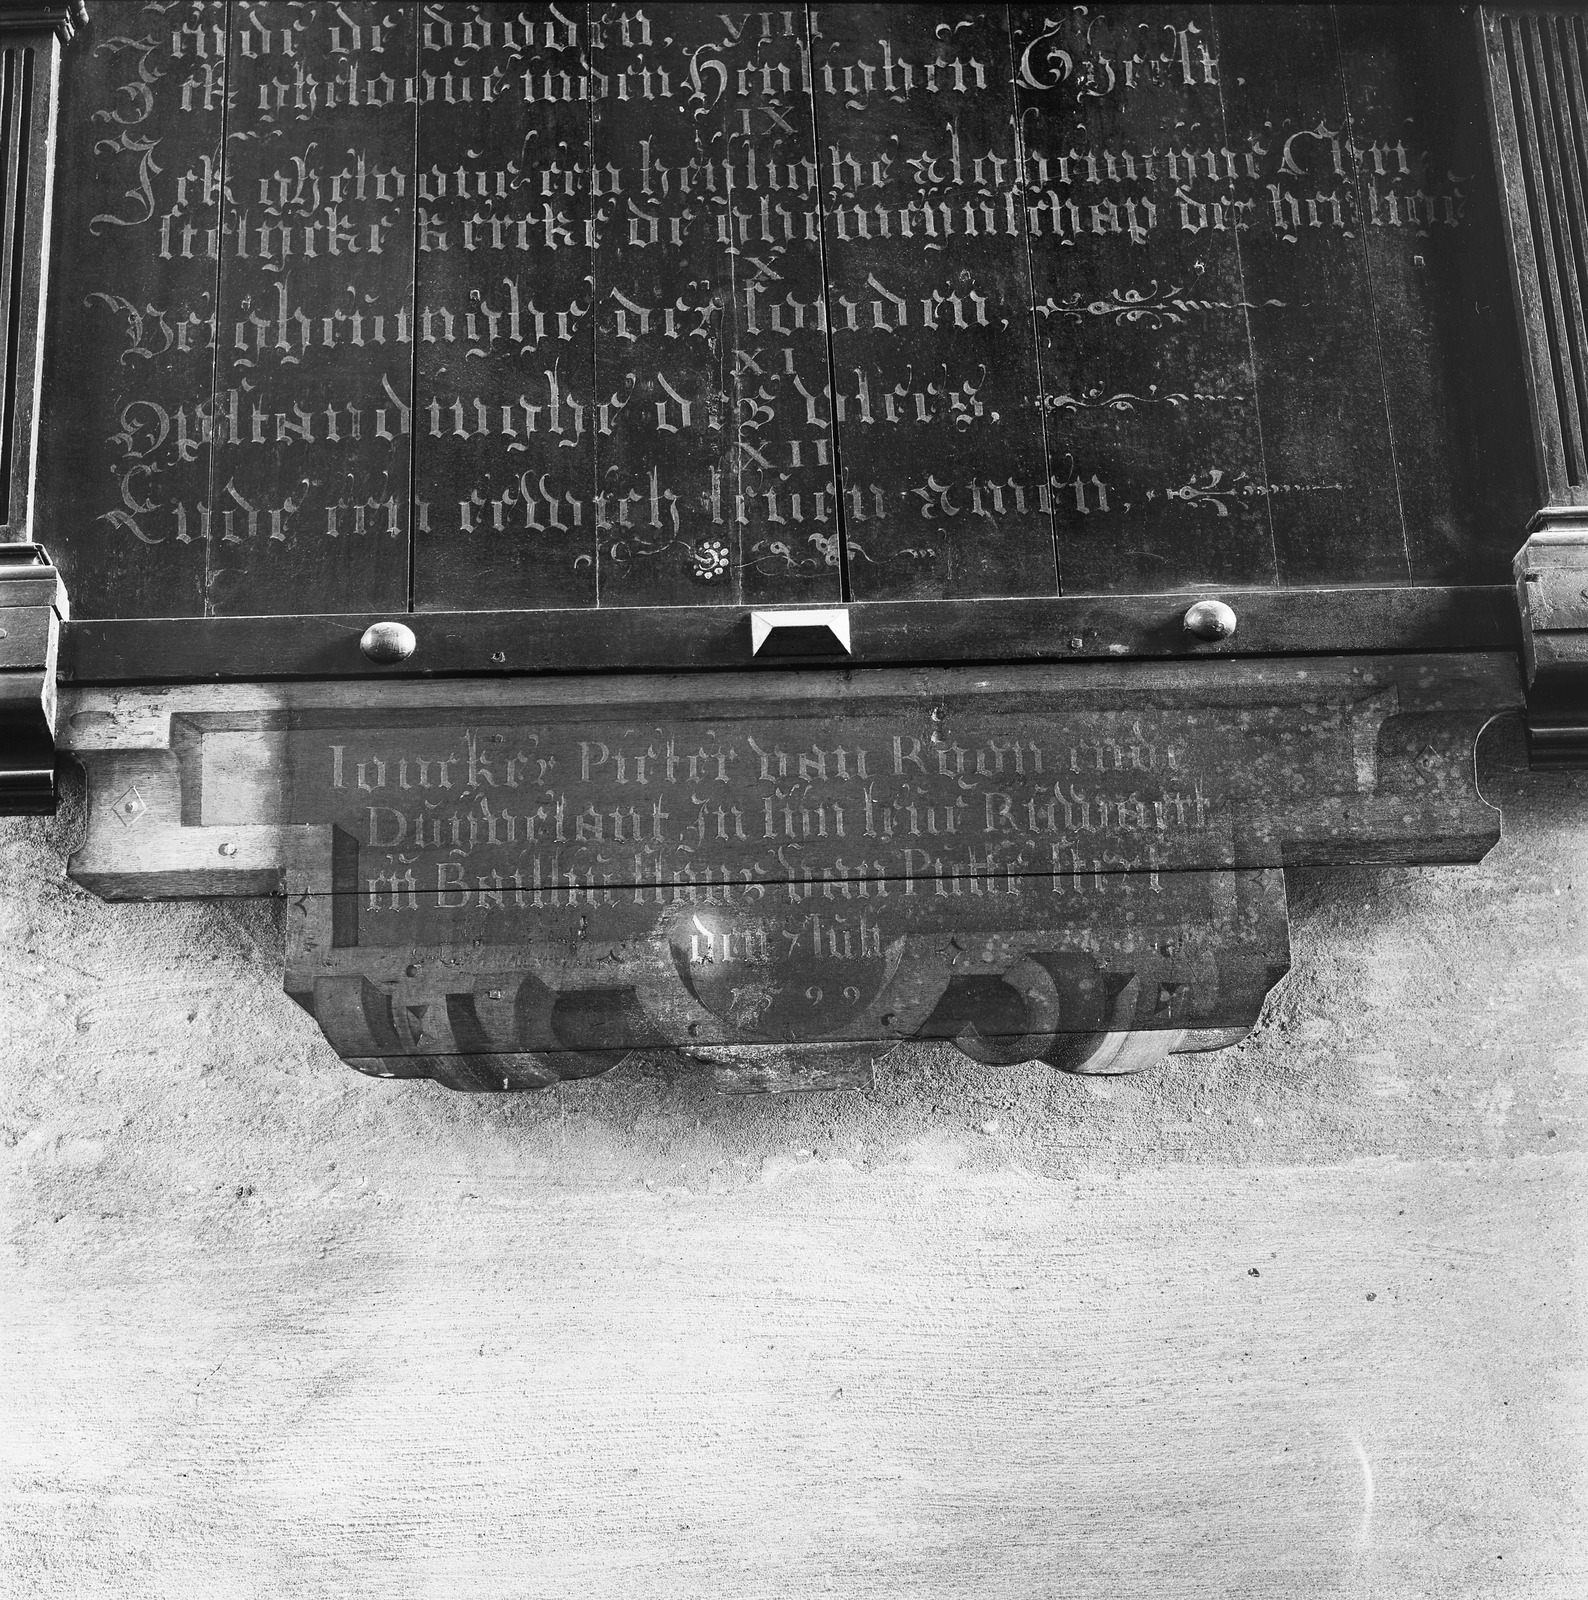 ende de dooden. VIII
Ick gheloove in den Heylighen Gheest.
IX
Ick gheloove een heylighe algemeyne Chri
stelycke kercke de ghemeynschap der heylige
X
Vergheuinghe der sonden.
XI
Opstandinghe des vlees.
XII
Ende een eewich leuen Amen.
Ioncker Pieter van Roon ende
Duyvelant In sijn leue Ruwaert
en Bailliu slans van Putte sterf
den 7 Iuli
1599